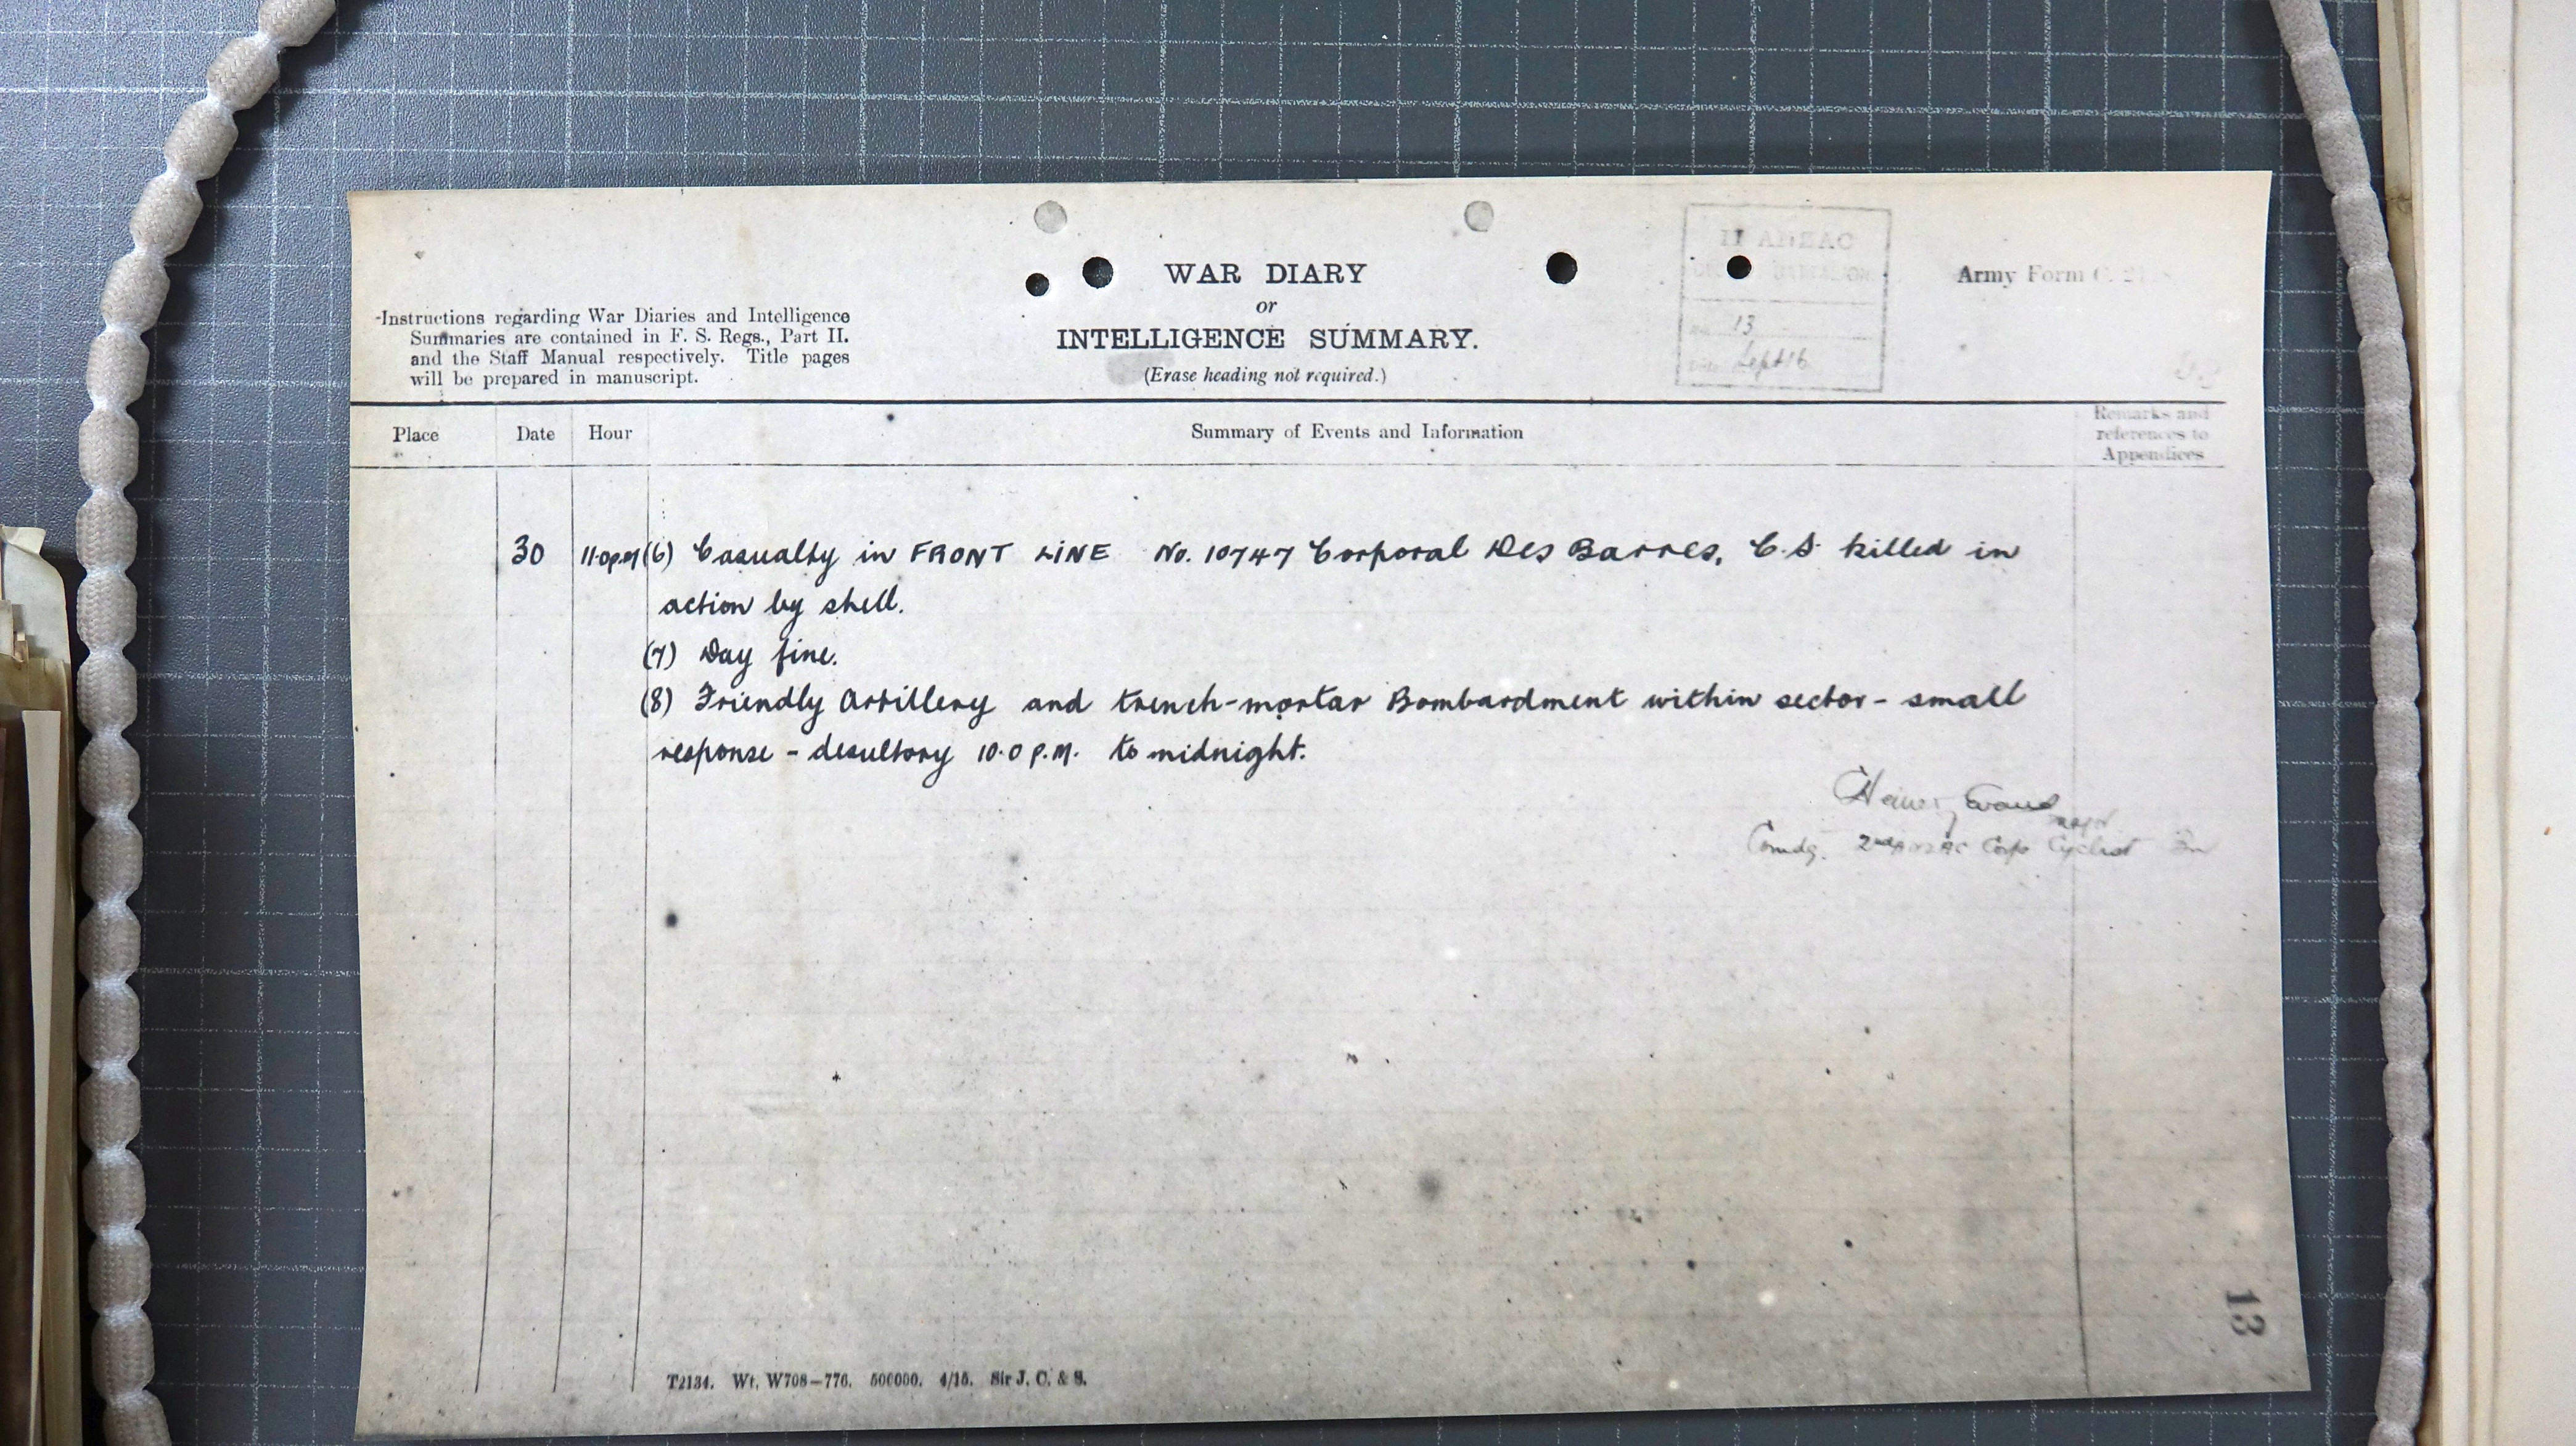 II ANZAC
13
Sept 16
Army Form C. 2118
WAR DIARY
or
INTELLIGENCE SUMMARY.
(Erase heading not required.)
Instructions regarding War Diaries and Intelligence
Summaries are contained in F. S. Regs., Part II.
and the Staff Manual respectively. Title pages
will be prepared in manuscript.
Place Date Hour Summary of Events and Information Remarks and
references to
Appendices
30 11.0 p.m (6) Casualty in FRONT LINE No. 10747 Corporal Des Barres, C.S. killed in
action by shell.
(7) Day fine.
(8) Friendly Artillery and trench-mortar Bombardment within sector - small
response - desultory 10.0 P.M. to midnight.
Evans
Major
Comdg. 2nd ANZAC Corps Cyclist Bn
13
T2134. Wt. W708—776. 500000. 4/15. Sir J. C. & S.